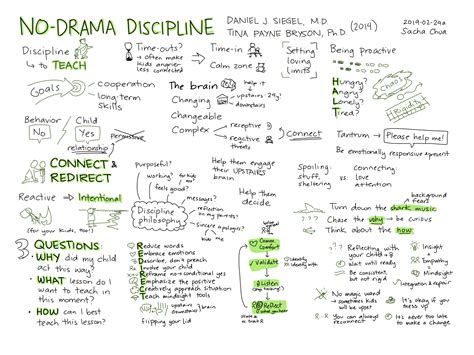 NO-DRAMA DISCIPLINE
DANIEL J. SIEGEL, M.D.
TINA PAYNE BRYSON, Ph.D.
(2014)
2019-02-24a
Sacha Chua
Discipline
↳ to TEACH
Time-outs?
often make kids angrier, less connected
Time-in
Calm zone
Setting
loving
limits
Being Proactive
Hungry?
Angry?
Lonely?
Tired?
Chaos
Rigidity
Goals
cooperation
long-term
skills
The brain
Changing
Changeable
Complex
help it
upstairs
downstairs
receptive
reactive
threats
Connect
Behavior
No
Child
Yes
Permissive
relationship
Tantrum → Please help me!
Be emotionally responsive & present
CONNECT &
REDIRECT
Reactive → Intentional
(for your kids, too!)
Purposeful?
working?
for kids too?
feels good?
messages?
Discipline
philosophy
reflection on my parents
Sincere apologies?
Help them engage
their UPSTAIRS
BRAIN
Help them
decide
Spoiling:
stuff,
sheltering
vs.
connecting:
love
attention
background &
fears!
Turn down the shark music.
Chase the why → be curious
Think about the how
3 QUESTIONS:
• WHY did my child
act this way
• WHAT lesson do I
want to teach in
this moment?
• HOW can I best
teach this lesson?
Reduce words
Embrace emotions
Describe, don't preach
Involve your child
Reframe no → conditional yes
Emphasize the positive
Creatively approach situation
Teach mindsight tools
upstairs
downstairs
flipping your lid
Comfort
Validate
Identify
Identify with
Listen
(stop talking!)
Reflect
what you hear
Reflecting with
your child
Wait until ready
Be consistent,
but not rigid
Insight
+
Empathy
=
Mindsight
Integration & repair
No magic wand
sometimes kids
will be upset
You can always
reconnect
It's okay if you
mess up
It's never too late
to make a change